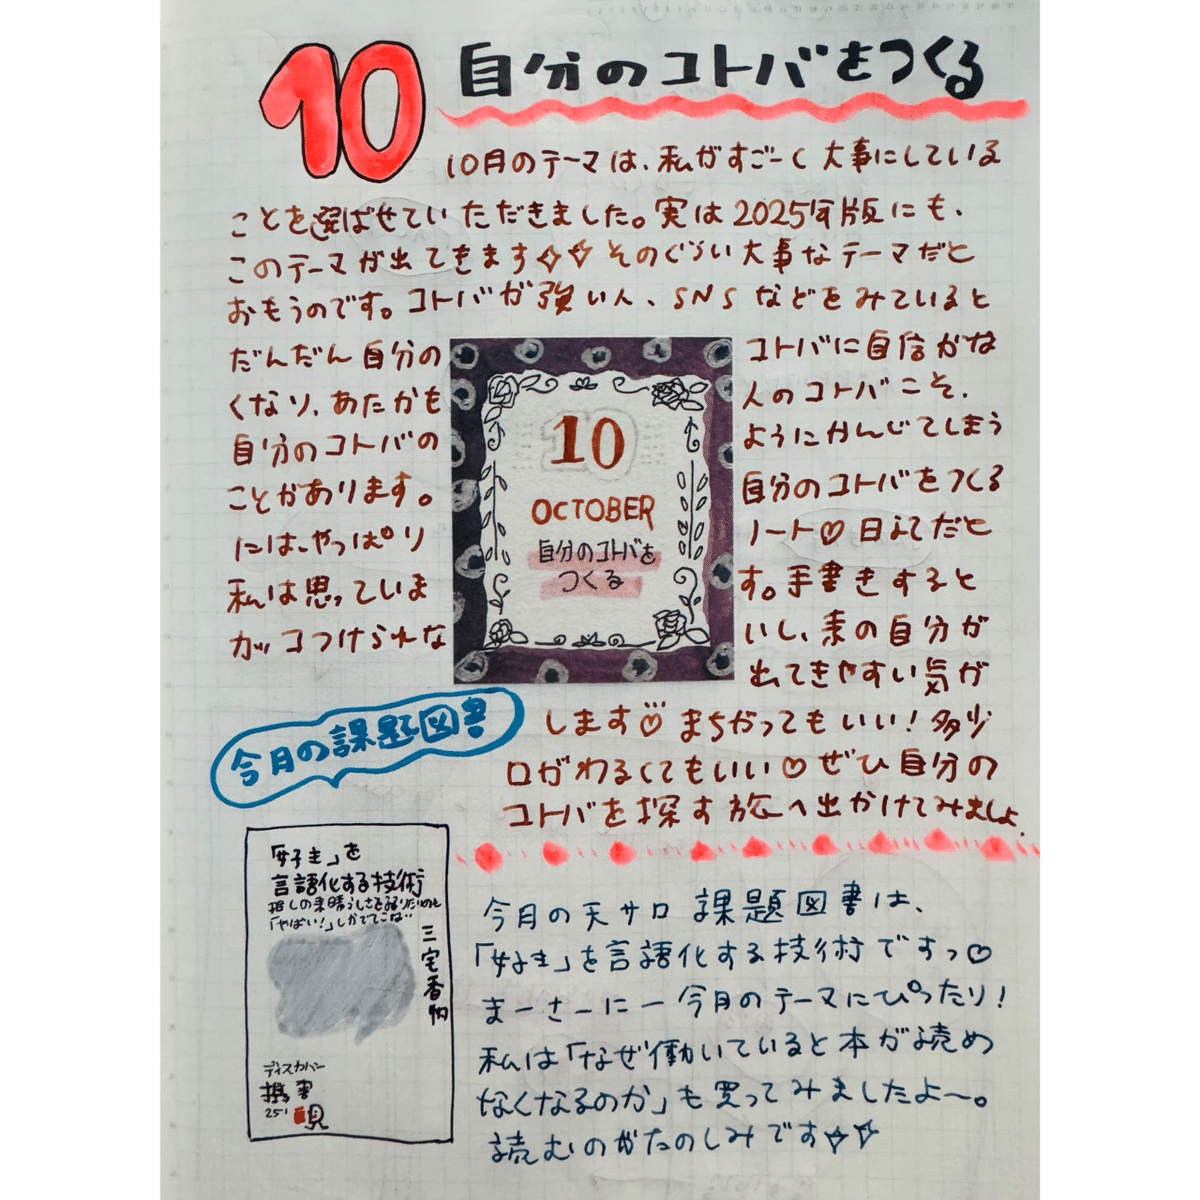 10 自分のコトバをつくる
10月のテーマは、私がすごーく大事にしている
ことを選ばせていただきました。実は2025年版にも、
このテーマが出てきます☆☆そのぐらい大事なテーマだと
おもうのです。コトバが強い人、SNSなどをみていると
だんだん自分の コトバに自信がな
くなり、あたかも 人のコトバこそ、
自分のコトバの ようにかんじてしまう
ことがあります。 自分のコトバをつくる
には、やっぱり ノート♡ だと
私は思っていま す。手書きすると
カッコつけられな いし、素の自分が
出てきやすい気が
します♡まちがってもいい！多少
口がわるくてもいい♡ぜひ自分の
コトバを探す旅へ出かけてみましょ.
10
OCTOBER
自分のコトバを
つくる
今月の課題図書
「好き」を
言語化する技術
推しの素晴らしさを語りたいのに
「やばい！」しかでてこない
三宅香帆
ディスカバー
携書
251
今月の天サロ課題図書は、
「好き」を言語化する技術ですっ♡
まーさーにー今月のテーマにぴったり！
私は「なぜ働いていると本が読め
なくなるのか」も買ってみましたよ〜。
読むのがたのしみです☆☆